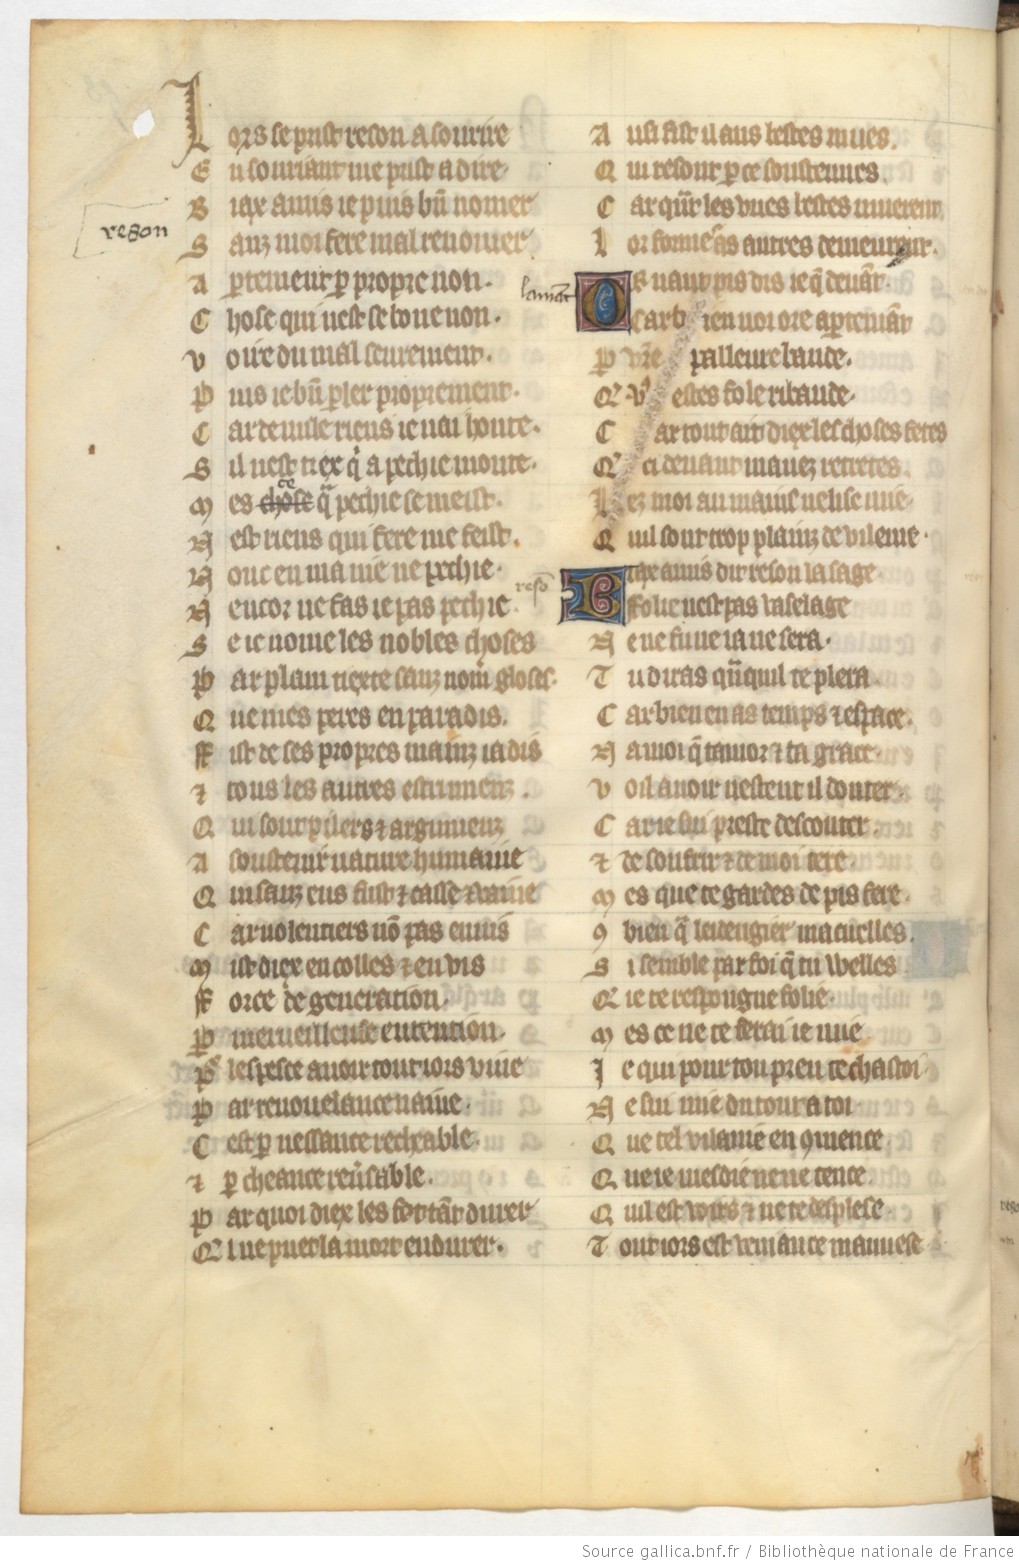 Lors se prist reson a sourire
En souriant me prist a dire
Biax amis ie puis bn̄ nomer
regon
Sanz moi fere mal renomer
Apertement ꝑ propre non.
Chose qui nest se boue non.
Voire du mal seurement.
Puis ie bn̄ ꝑler proprement.
Car de nule riens ie nai honte.
Sil nest tiex q̄ a pechie monte.
ce
Mes chose q̄ pechie se meist.
Nest riens qui fere me feist.
Nonc en ma uie ne pechie.
Nencor ne fas ie pas pechie.
Se ie nome les nobles choses
Par plain tiexte sanz nom̄ gloses.
Que mes peres en paradis.
Fist de ses propres mainz iadis
⁊ tous les autres estrumenz.
Qui sont pilers ⁊ argumenz
A soustenir nature humaine
Qui sanz eus fust ⁊ casse ⁊ vaine
Car uolentiers nō pas enuis
Mist diex en colles ⁊ en vis
Force de generation.
Ꝑ merueilleuse entention.
Pͬ lespesce auoir touriors viue
Par renouelance naiue.
Cest ꝑ nessance recheable.
⁊ ꝑ cheance reũsable.
Par quoi diex les fet tāt durer
Quel ne puet la mort endurer.
Ausi fist il aus bestes mues.
Qui resont ꝑ ce soustenues.
Car qn̄t les vnes bestes muerent
Lor forme ās autres demeurent.
lamāt
Or uaut pis dis ie q̄ deuāt.
Car bien uoi ore aꝑteniāt
Ꝑ vr̄e palleure baude.
Que vͦ estes fole ribaude.
Car tout ait diex les choses fetes
Que ci deuant mauez retretes.
Lez moi au mainz ne fist mie
Quil sont trop plainz de vilenie.
resō
Biax amis dit reson la sage
Folie nest pas vaselage
Ne ne fu ne ia ne sera.
Tu diras qn̄quil te plera
Car bien en as temps ⁊ espace.
Na moi q̄ tamor ⁊ ta grace.
Voil auoir nesteut il douter.
Car ie sui preste descouter.
⁊ de soufrir ⁊ de moi tere.
Mes que te gardes de pis fere.
9bien q̄ ledengier macuelles.
Si semble par foi q̄ tu welles
Que ie te respongne folie.
Mes ce ne te ferai ie mie
Ie qui pour ton preu te chastoi
Ne sui mie dutour a toi
Que tel vilanie en 9mence
Que ie mesdie ne ne tence.
Quil est voirs ⁊ ne te desplese
Touriors est veniance mauuese
Source gallica.bnf.fr / Bibliothèque nationale de France